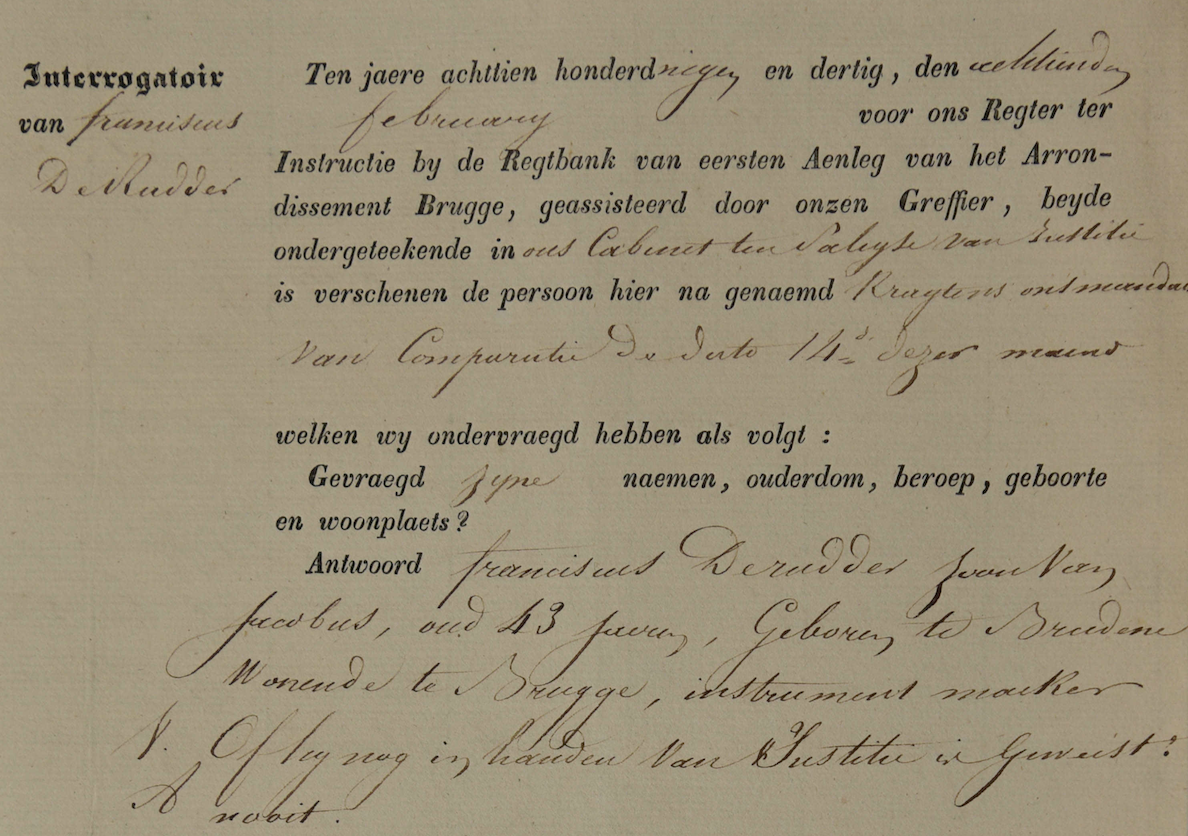 Interrogatoir
van franciscus
DeRudder
Ten jaere achttien honderd negen en dertig, den achtienden
february voor ons Regter ter
Instructie by de Regtbank van eersten Aenleg van het Arron-
dissement Brugge, geassisteerd door onzen Greffier, beyde
ondergeteekende in ons Cabinet ten Paleyse van Justitie
is verschenen de persoon hier na genaemd Kragtens ons mandaet
van Comparutie de dato 14 dezer maend
welken wy ondervraegd hebben als volgt :
Gevraegd zyne naemen, ouderdom, beroep, geboorte
en woonplaets?
Antwoord franciscus Derudder zoon Van
Jacobus, oud 43 jaeren, Geboren te Bredene
Wonende te Brugge, instrument maeker
V. Of hy nog in handen Van Justitie is Geweest?
A nooit.